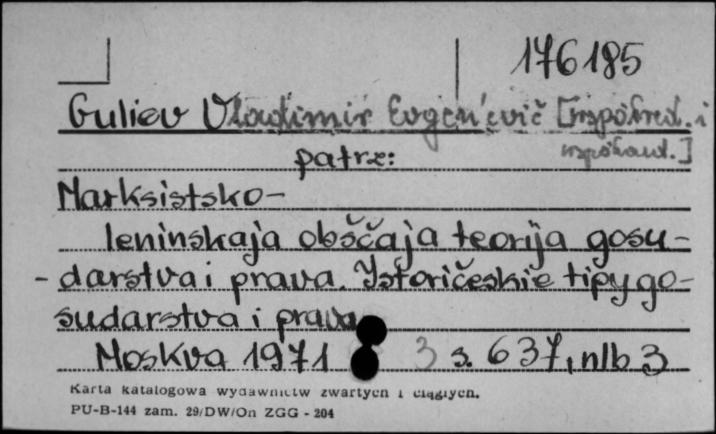 176185
Guliev Vladimir Evgen'evič [współred. i
współaut.]
patrz:
Marksistsko-
leninskaja obščaja teorija gosu-
- darstva i prava. Istoričeskie tipy go-
sudarstva i prava
Moskva 1971 3 s. 637, nlb 3
Karta katalogowa wydawnictw zwartych i ciągłych.
PU-B-144 zam. 29/DW/On ZGG - 204